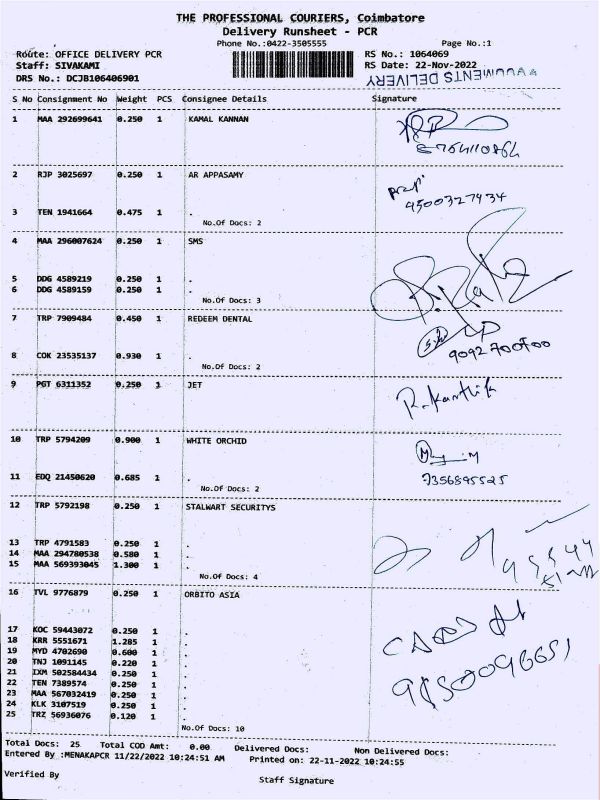 THE PROFESSIONAL COURIERS, Coimbatore
Delivery Runsheet - PCR
Phone No.:0422-3505555 Page No.:1
Route: OFFICE DELIVERY PCR RS No.: 1064069
Staff: SIVAKAMI RS Date: 22-Nov-2022
DRS No.: DCJB106406901
DOCUMENTS DELIVERY
S No Consignment No Weight PCS Consignee Details Signature
1 MAA 292699641 0.250 1 KAMAL KANNAN
8764110864
2 RJP 3025697 0.250 1 AR APPASAMY
9500327434
3 TEN 1941664 0.475 1 .
No.Of Docs: 2
4 MAA 296007624 0.250 1 SMS
5 DDG 4589219 0.250 1 .
6 DDG 4589159 0.250 1 .
No.Of Docs: 3
7 TRP 7909484 0.450 1 REDEEM DENTAL
9092700700
8 COK 23535137 0.930 1 .
No.Of Docs: 2
9 PGT 6311352 0.250 1 JET
R. Karthik
10 TRP 5794209 0.900 1 WHITE ORCHID
7356895525
11 EDQ 21450620 0.685 1 .
No.Of Docs: 2
12 TRP 5792198 0.250 1 STALWART SECURITYS
13 TRP 4791583 0.250 1 .
14 MAA 294780538 0.580 1 .
15 MAA 569393045 1.300 1 .
No.Of Docs: 4
16 TVL 9776879 0.250 1 ORBITO ASIA
17 KOC 59443072 0.250 1 .
18 KRR 5551671 1.285 1 .
19 MYD 4702690 0.600 1 .
20 TNJ 1091145 0.220 1 .
21 IXM 502584434 0.250 1 .
22 TEN 7389574 0.250 1 .
23 MAA 567032419 0.250 1 .
24 KLK 3107519 0.250 1 .
25 TRZ 56936076 0.120 1 .
No.Of Docs: 10
Total Docs: 25 Total COD Amt: 0.00 Delivered Docs: Non Delivered Docs:
Entered By :MENAKAPCR 11/22/2022 10:24:51 AM Printed on: 22-11-2022 10:24:55
Verified By
Staff Signature